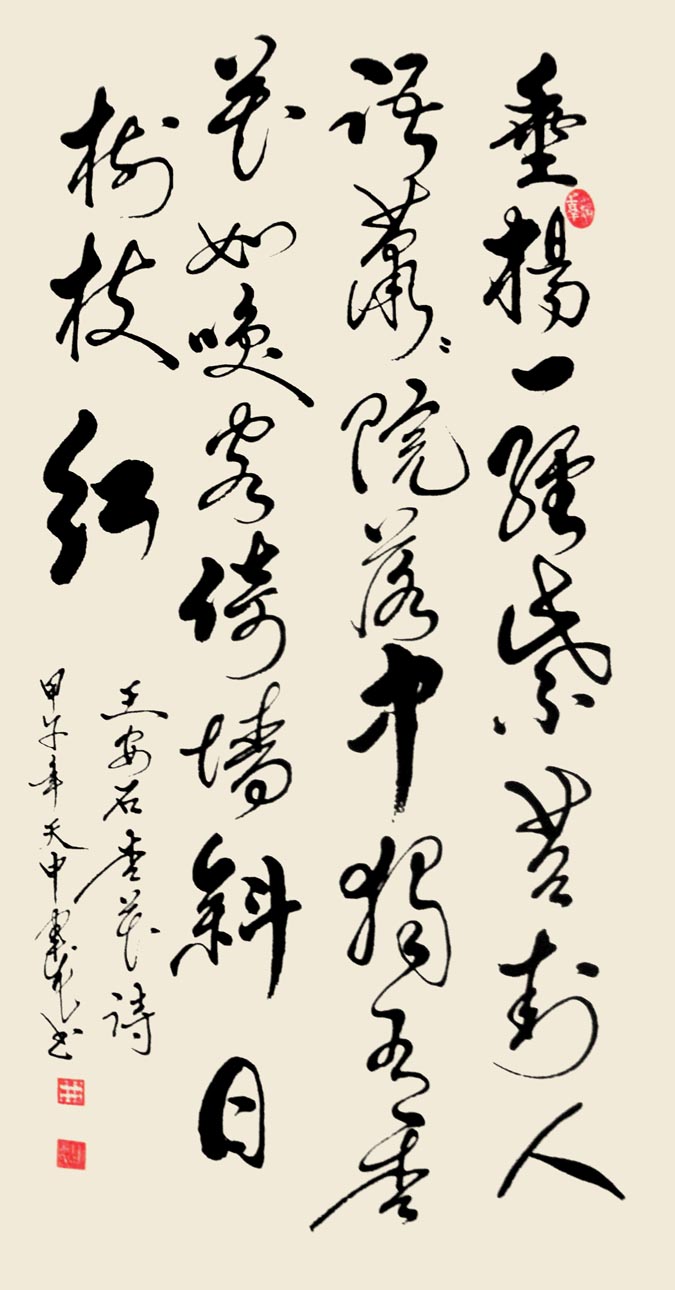 垂楊一經紫苔封人
語蕭〻院落中獨有杏
花如喚客倚墻斜日
樹枝紅
王安石杏花詩
甲午年天中書